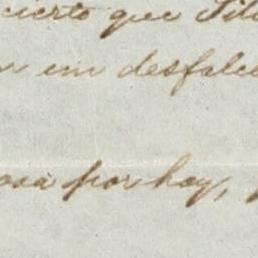 cierto que Sil
n un desfalc
osa por hoy,